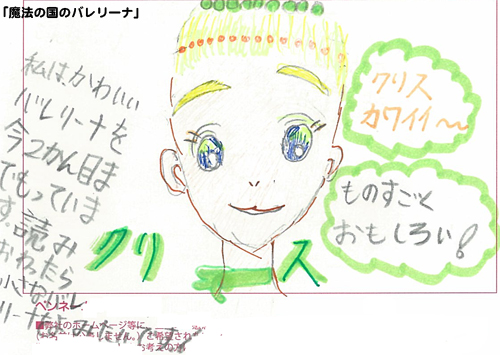 「魔法の国のバレリーナ」
私は、かわいい
バレリーナを
今2かん目ま
でもっていま
す。読み
おわたら
小さなバレ
リーナよみたいです!
クリス
カワイイ〜
ものすごく
おもしろい!
クリス
ペンネー
■弊社のホームページ等に